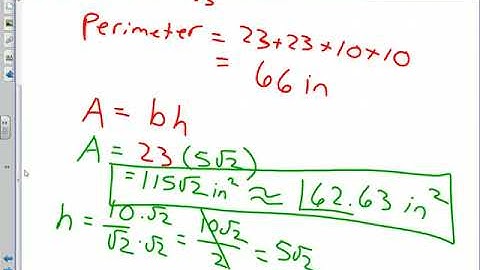 Perimeter = 23+23+10+10
= 66 in
A = bh
A = 23 (5√2)
= 115√2 in² ≈ 162.63 in²
h = 10·√2 / √2·√2 = 10√2 / 2 = 5√2